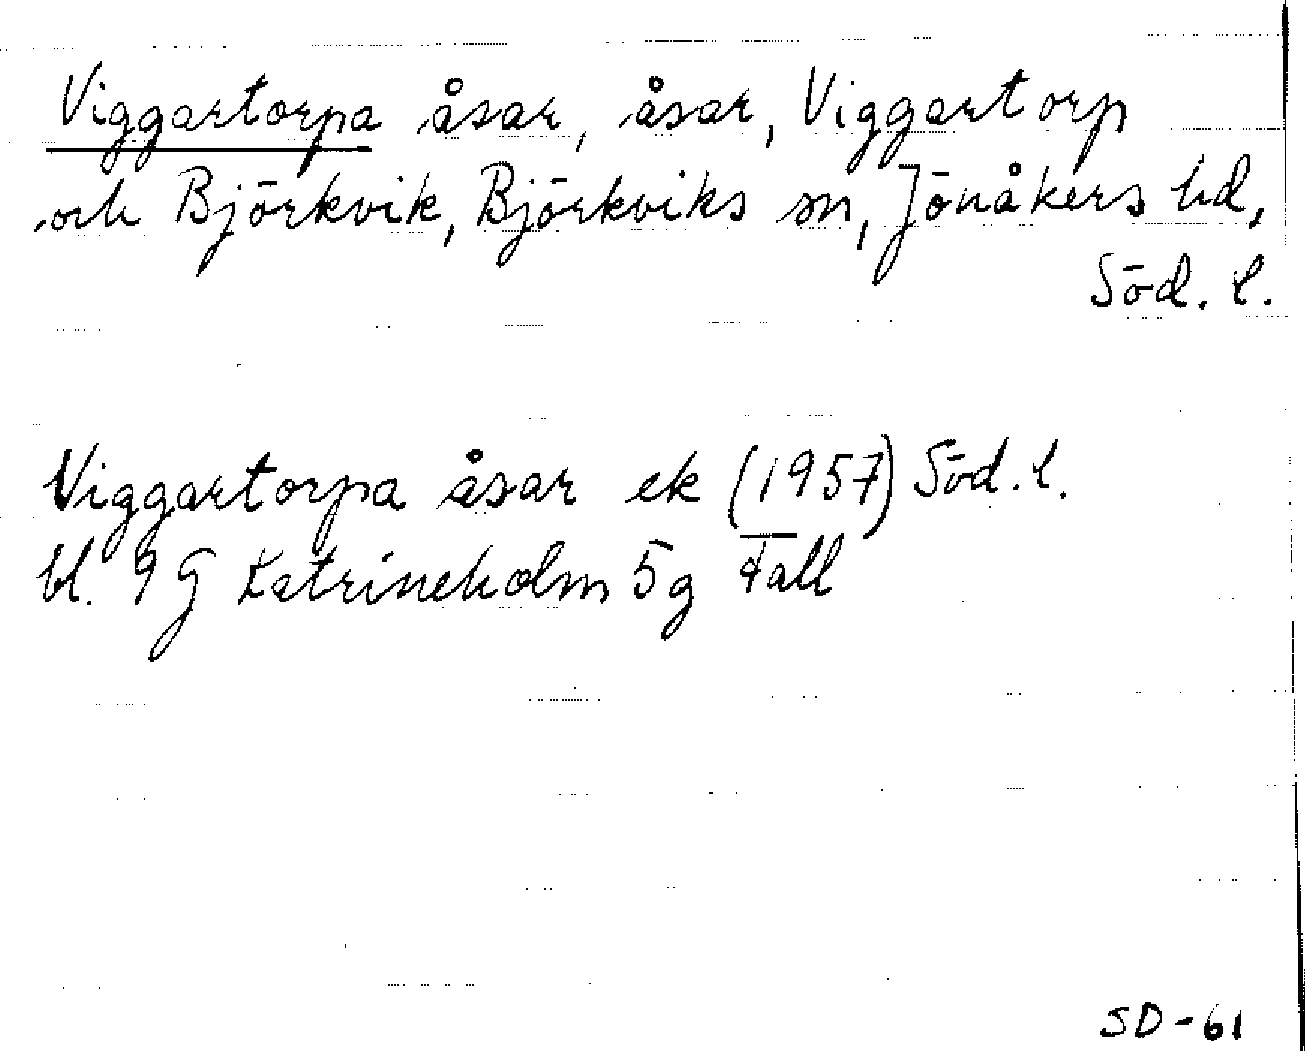 Viggartorpa åsar, åsar, Viggartorp
och Björkvik, Björkviks sn, Jönåkers hd,
Söd. l.
Viggartorpa åsar ek (1957) Söd. l.
bl. 9 G Katrineholm 5g Fall
SD-61